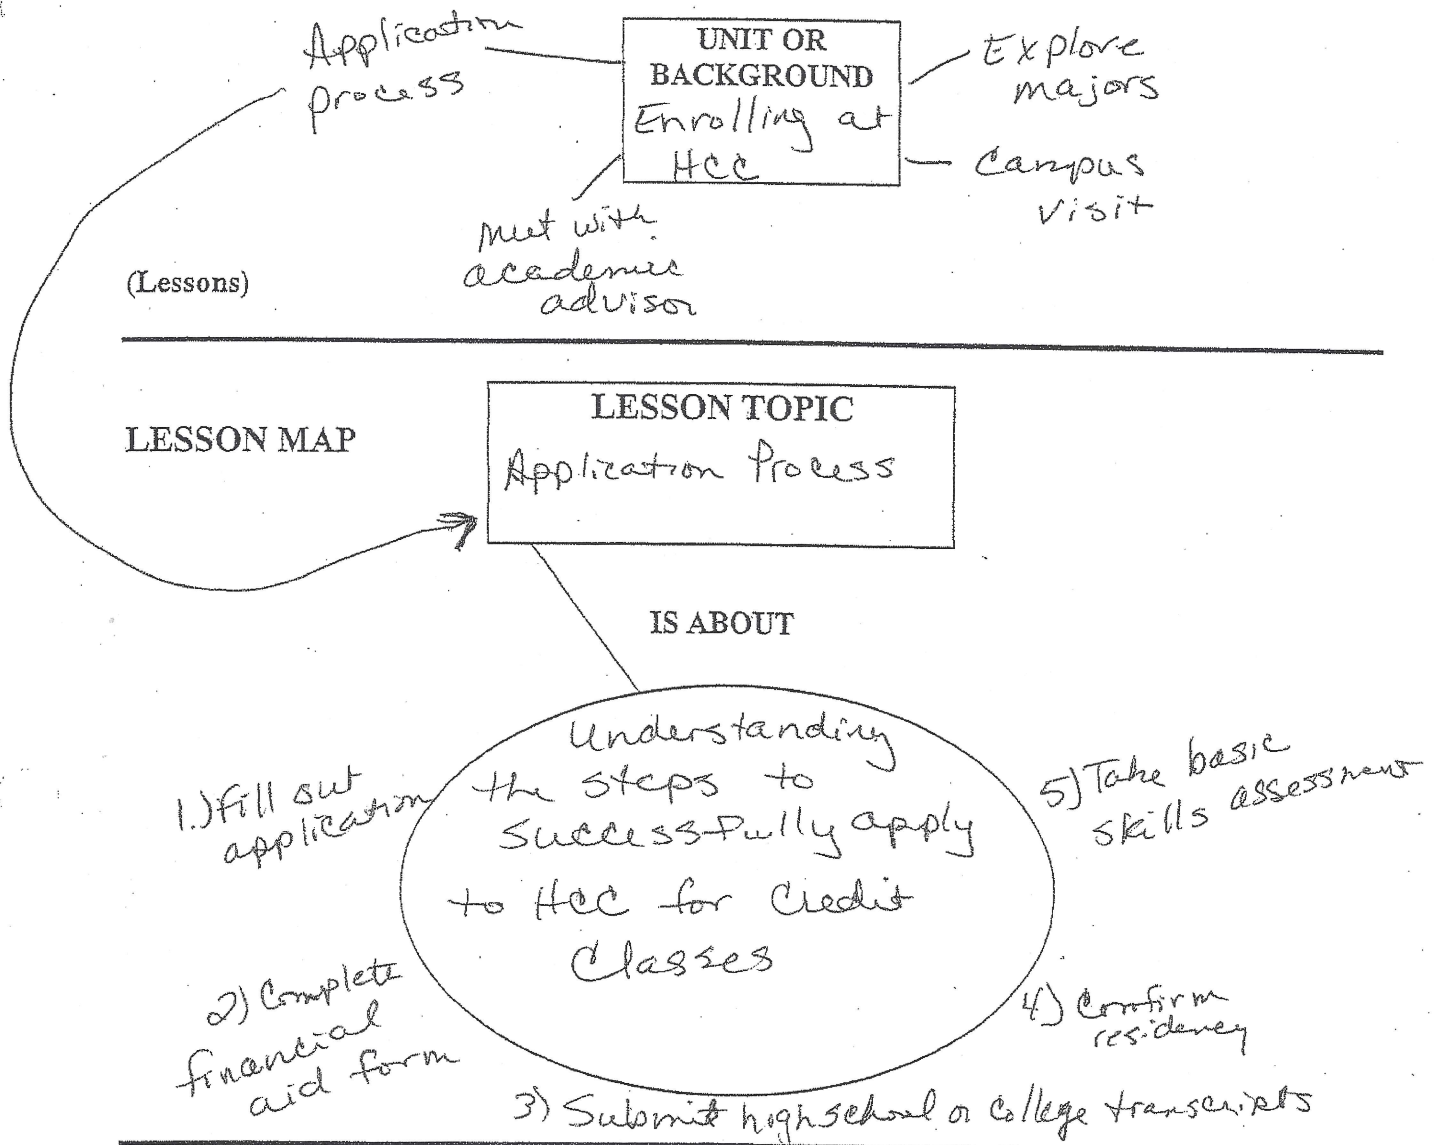 Application
process
UNIT OR
BACKGROUND
Enrolling at
HCC
Explore
majors
Campus
visit
Meet with
academic
advisor
(Lessons)
LESSON MAP
LESSON TOPIC
Application Process
IS ABOUT
Understanding
the steps to
successfully apply
to HCC for Credit
Classes
1.) Fill out
application
2) Complete
financial
aid form
3) Submit high school or college transcripts
4) Confirm
residency
5) Take basic
skills assessment